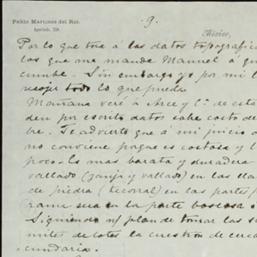 Pablo Martínez del Rio.
Apartado, 259.
9.
México,
Por lo que toca a los datos topografic
los que me manda Manuel á qu
cumbe. Sin embargo yo por mi l
recojo todo lo que pueda
Mañana veré á Arce y Cª. de esta
den por escrito datos sobre costo de
bre. Te advierto que á mi juicio
no conviene porque es costosa y
poco. Lo mas barata y duradera
vallado (zanja y vallado) en las lla
de piedra (tecorral) en las partes
rama seca en la parte boscosa
Siguiendo n/ plan de tomar las
mites de lotes la cuestion de cerca
cundaria.